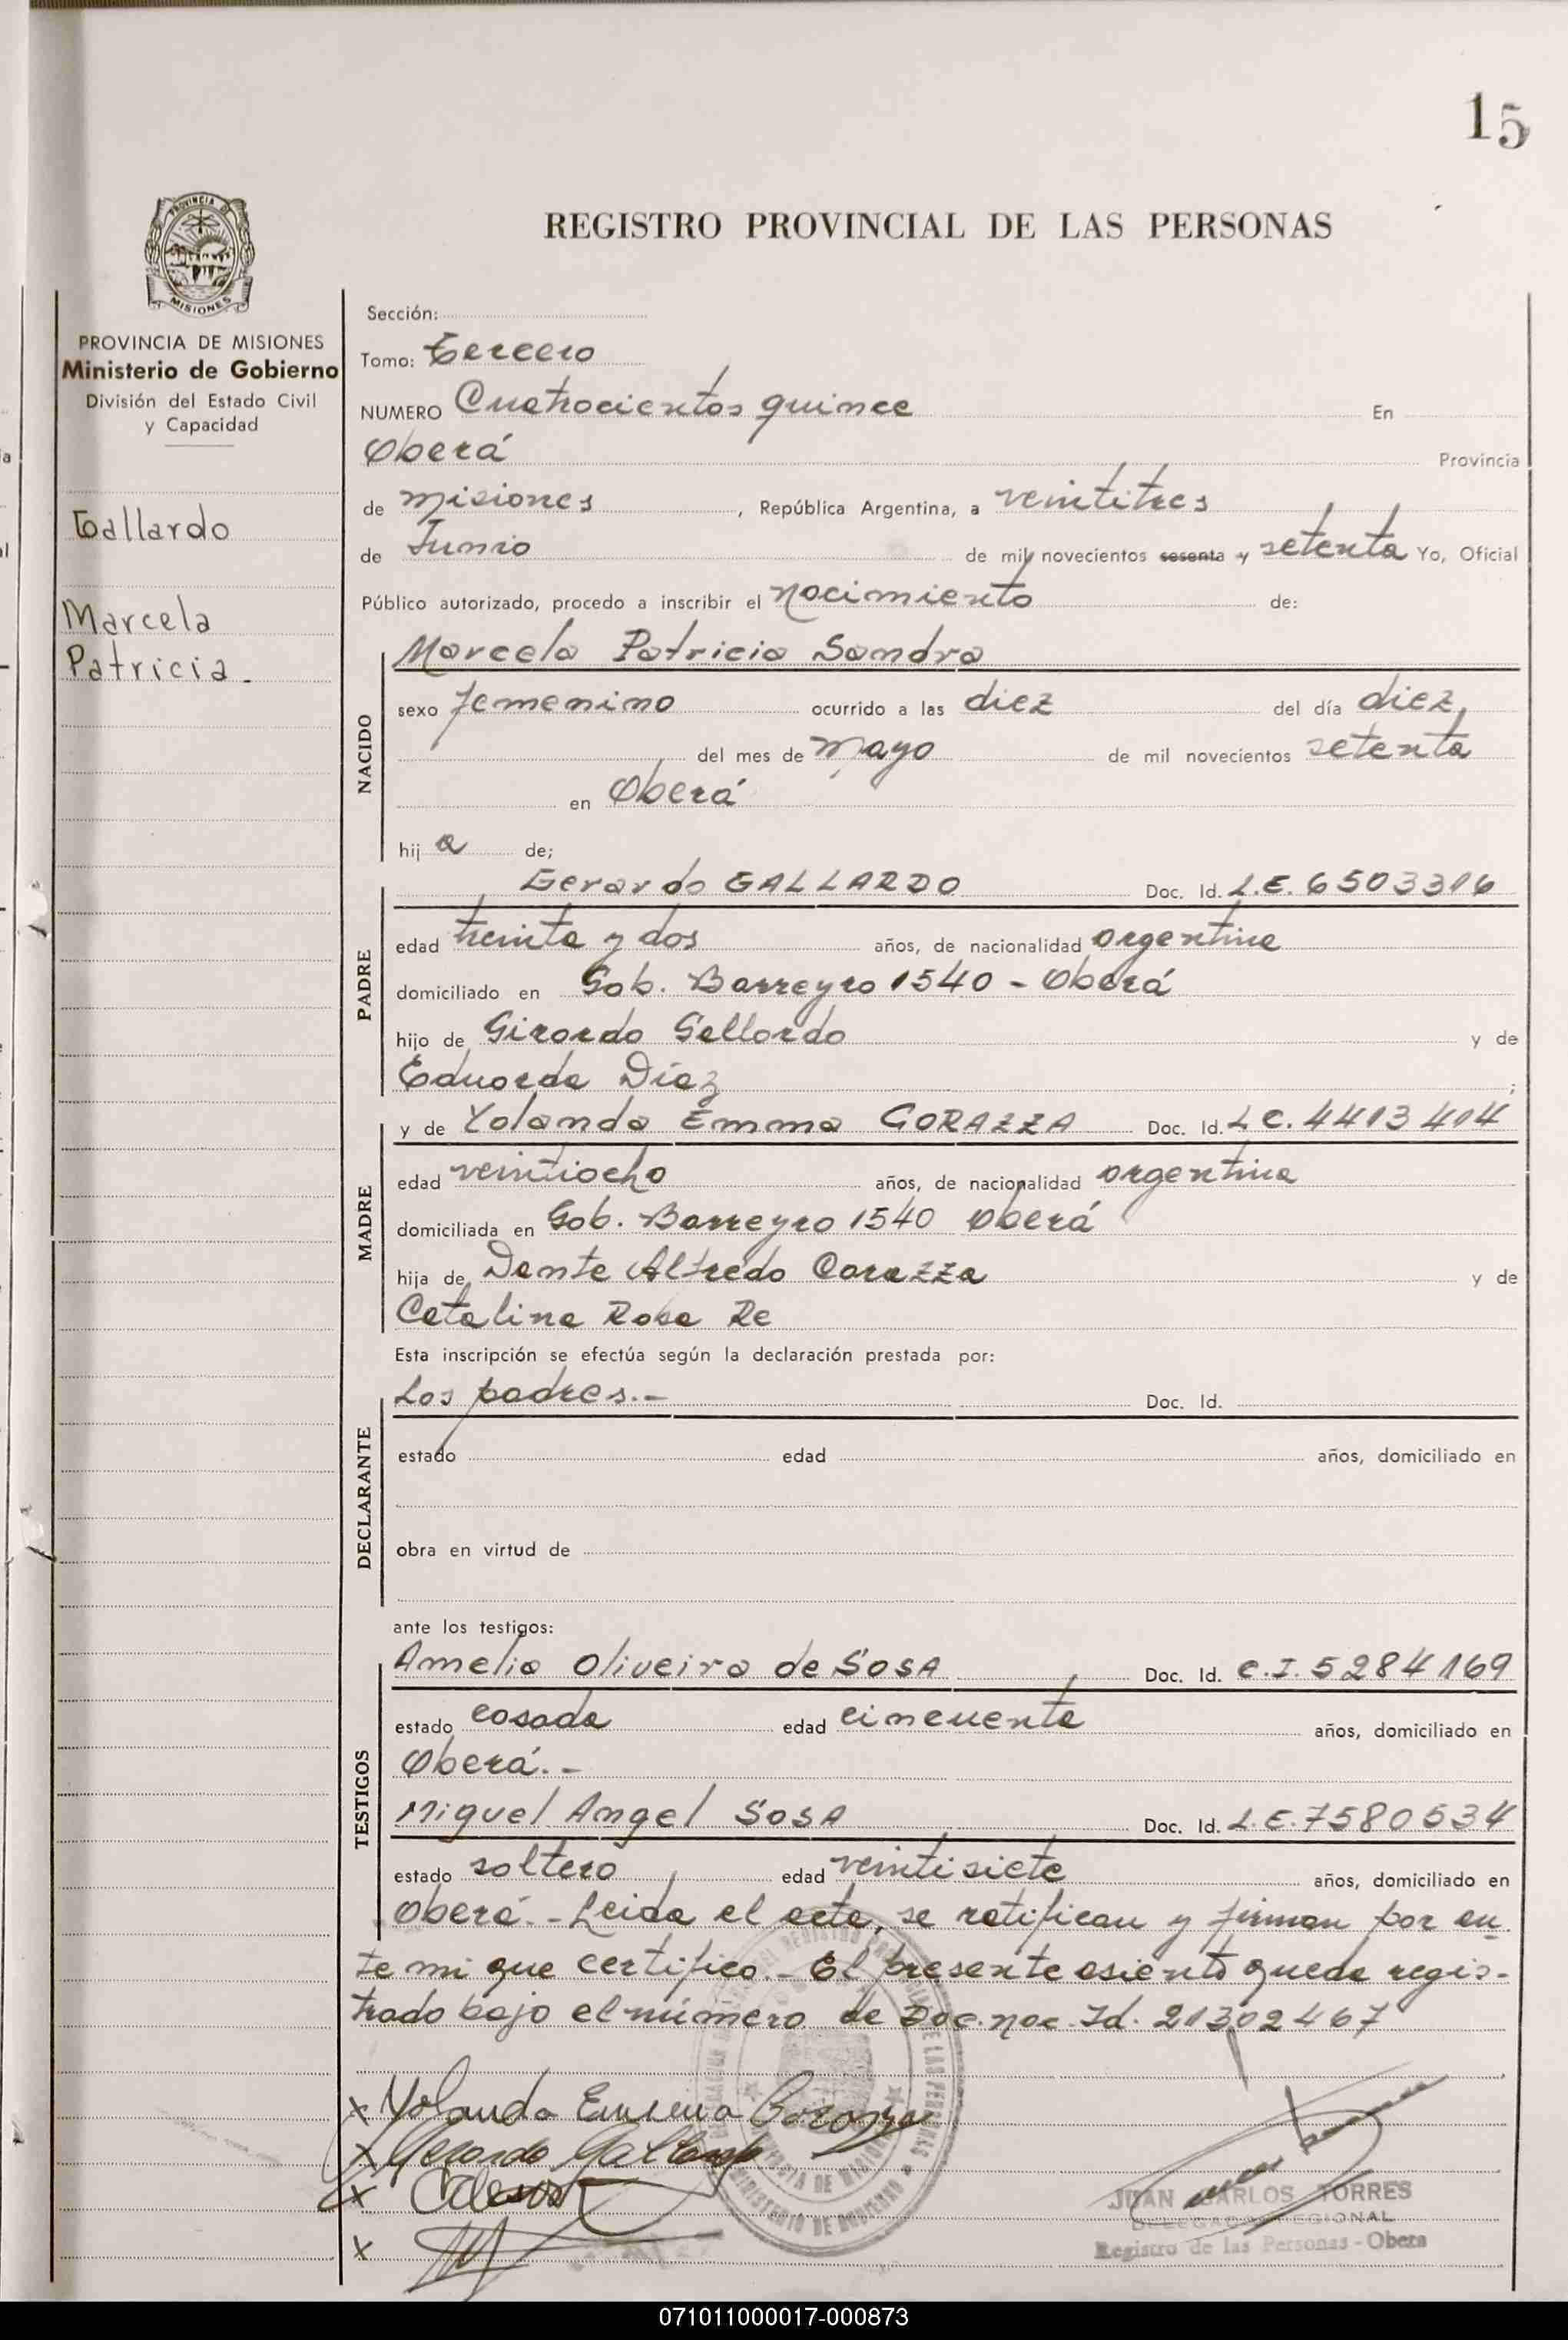 15
REGISTRO PROVINCIAL DE LAS PERSONAS
PROVINCIA DE MISIONES
PROVINCIA DE MISIONES
Ministerio de Gobierno
División del Estado Civil
y Capacidad
Gallardo
Marcela
Patricia.
Sección:
Tomo: Tercero
NUMERO Cuatrocientos quince En
Oberá Provincia
de Misiones, República Argentina, a veintitres
de Junio de mil novecientos sesenta y setenta Yo, Oficial
Público autorizado, procedo a inscribir el nacimiento de:
NACIDO
Marcela Patricia Sandra
sexo femenino ocurrido a las diez del día diez
del mes de Mayo de mil novecientos setenta
en Oberá
hij a de;
PADRE
Gerardo GALLARDO Doc. Id. L.E. 6503316
edad treinta y dos años, de nacionalidad argentina
domiciliado en Gob. Barreyro 1540 - Oberá
hijo de Girardo Gallardo y de
Eduarda Díaz ;
MADRE
y de Yolanda Emma GORAZZA Doc. Id. L C. 4413414
edad veintiocho años, de nacionalidad argentina
domiciliada en Gob. Barreyro 1540 Oberá
hija de Dante Alfredo Corazza y de
Catalina Rosa Re
Esta inscripción se efectúa según la declaración prestada por:
DECLARANTE
Los padres.- Doc. Id.
estado edad años, domiciliado en
obra en virtud de
ante los testigos:
TESTIGOS
Amelia Oliveira de SOSA Doc. Id. C.I. 5284169
estado casada edad cincuenta años, domiciliado en
Oberá.-
Miguel Angel SOSA Doc. Id. L.E. 7580534
estado soltero edad veintisiete años, domiciliado en
Oberá.- Leida el acta, se ratifican y firman por an
te mi que certifico.- El presente asiento queda regis-
trado bajo el número de Doc. nac. Id. 21302467
x Yolanda Emma Corazza
x Gerardo Gallardo
x
x
JUAN CARLOS TORRES
DELEGADO REGIONAL
Registro de las Personas - Obera
071011000017-000873